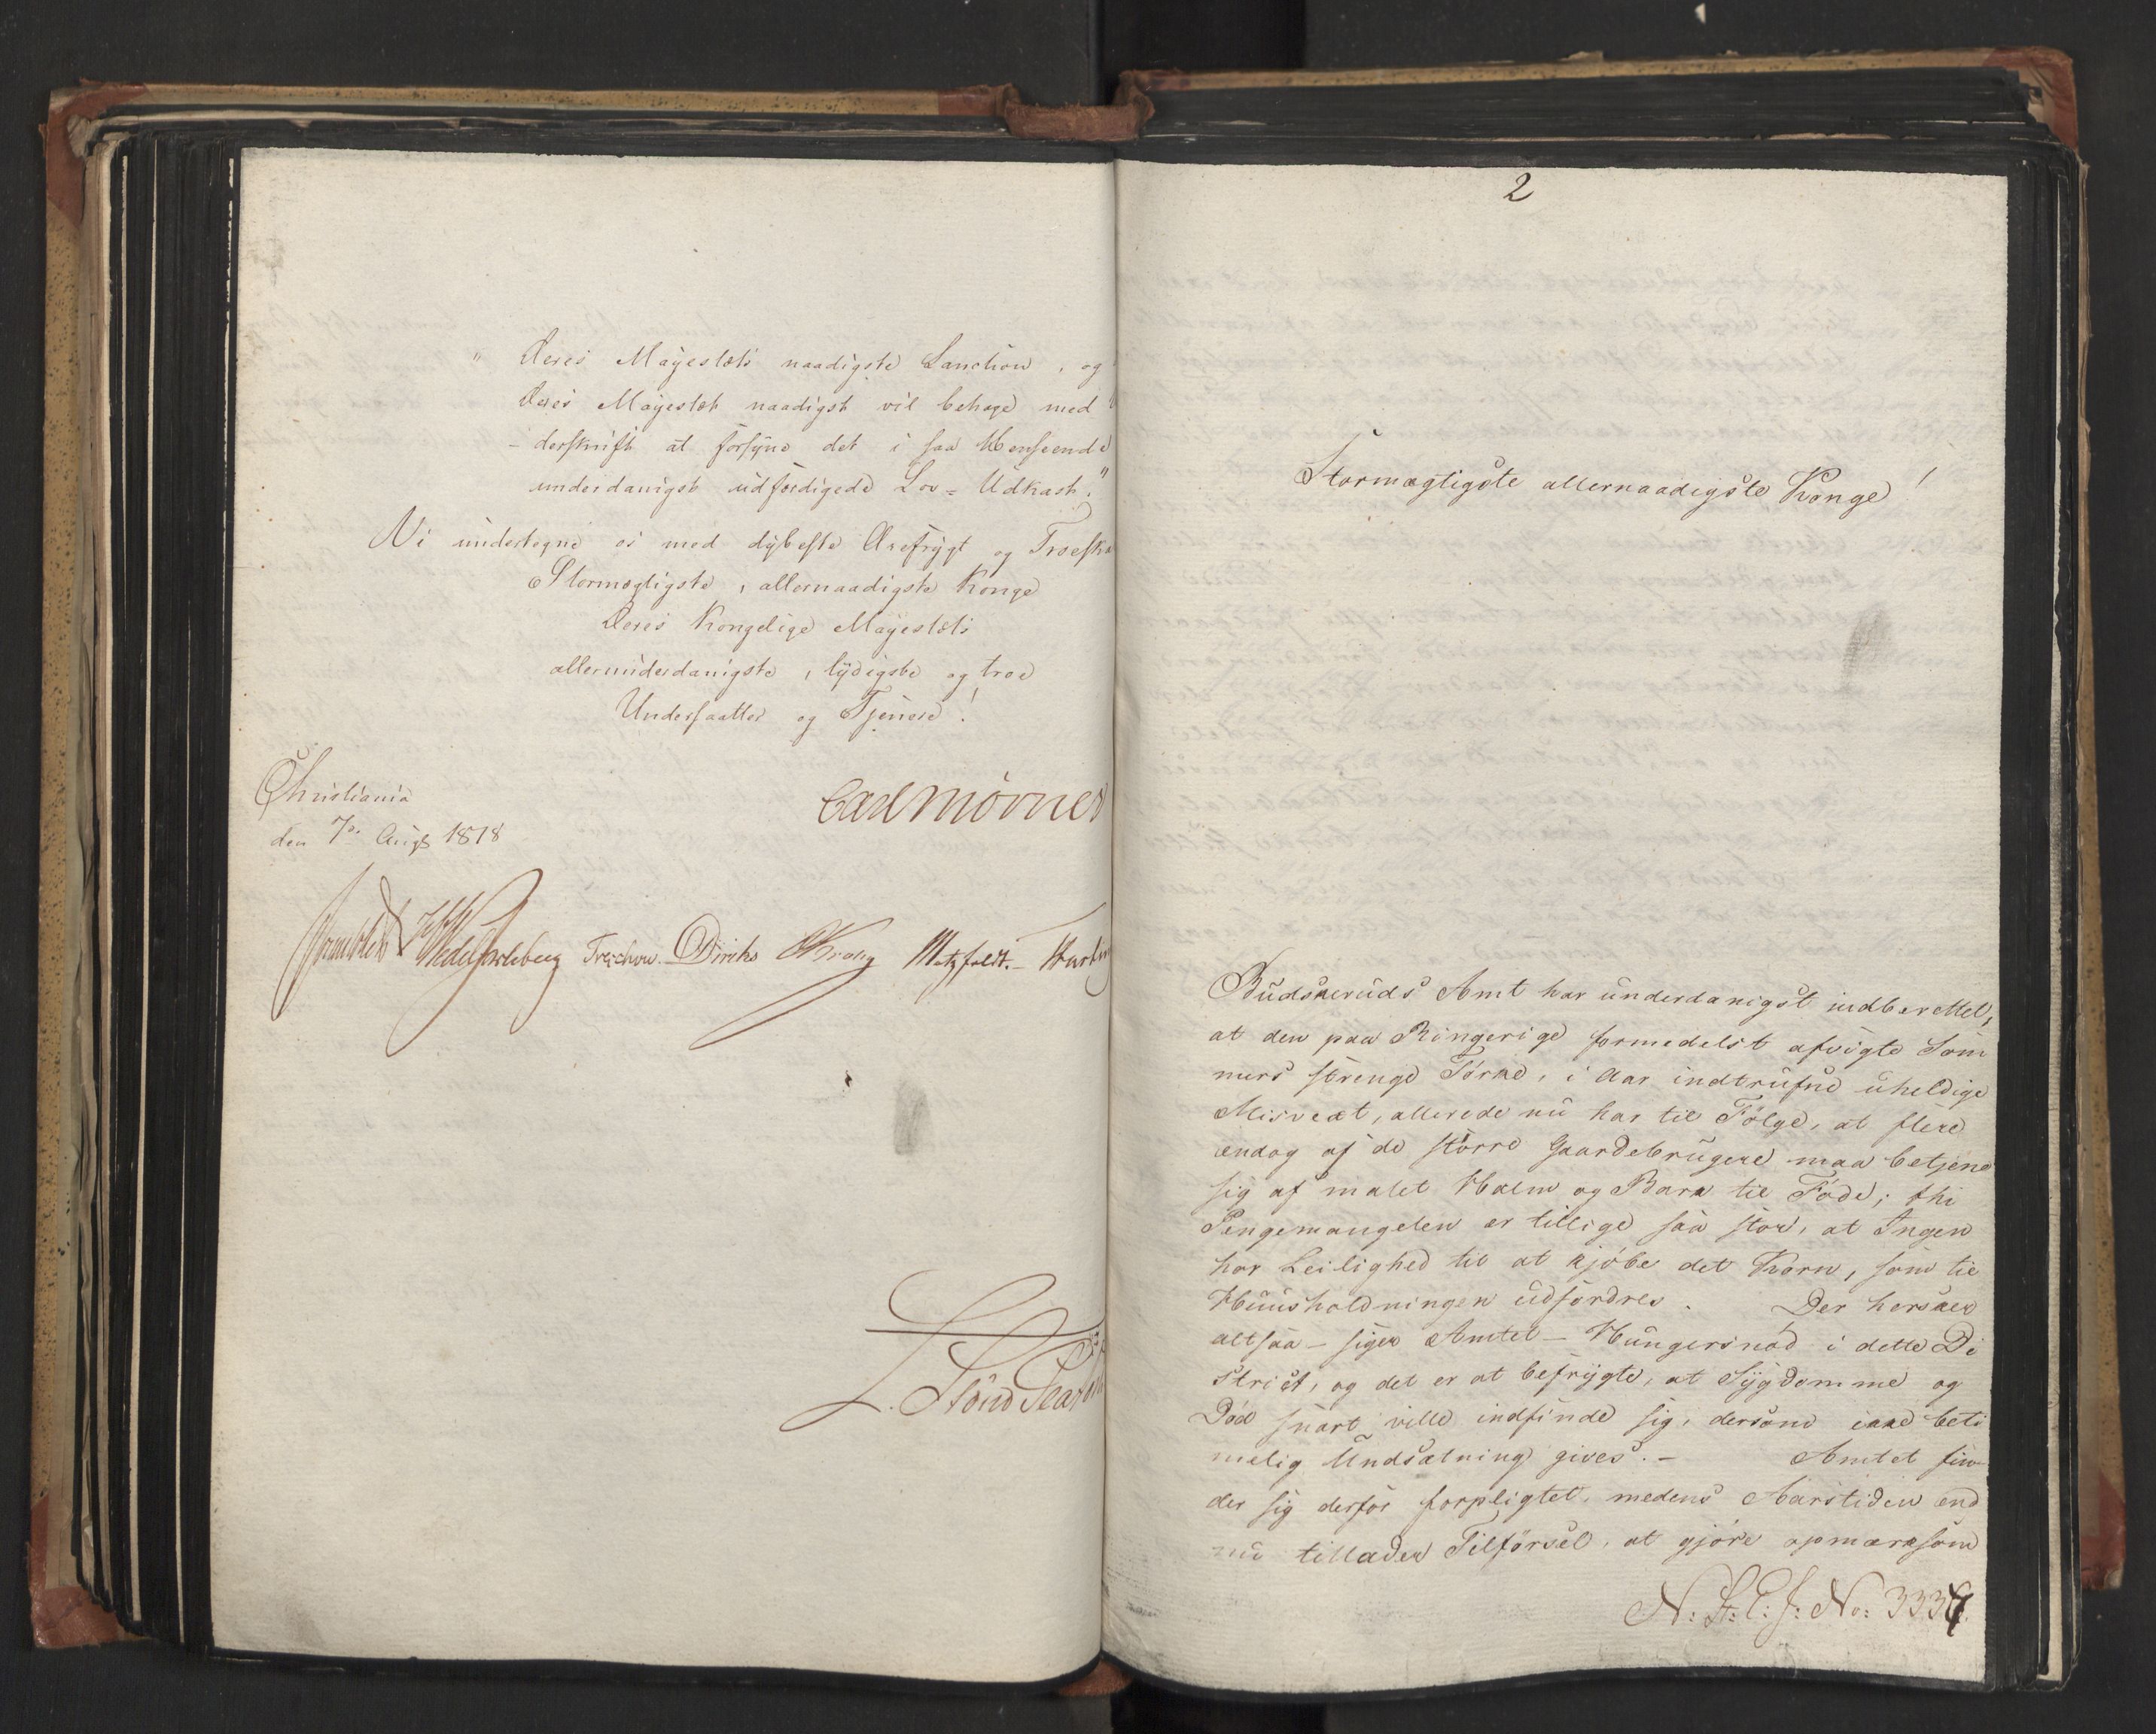 " Deres Mayestæts naadigste Sanction, og
Deres Mayestæt naadigst vil behage med
- derskrift at forsyne det i saa Henseende
underdanigst udfærdigede Lov = Udkast."
Vi undertegne os med dybeste Ærefrygt og Troeska
Stormægtigste, allernaadigste Konge
Deres Kongelige Mayestæts
allerunderdanigste, lydigste og troe
Undersaatter og Tjenere!
Christiania
den 7de Augt 1818
Carl Mörner
Wedel Jarlsberg Treschow. Diriks Krog Motzfeldt.
2
Stormægtigste allernaadigste Konge!
Budskeruds Amt har underdanigst indberettet,
at den paa Ringerige formedelst afvigte Som
mers strenge Törke, i Aar indtrufne uheldige
Misvæxt, allerede nu har til Fölge, at flere
endog af de större Gaardebrugere maa betjene
sig af malet Halm og Bark til Föde; thi
Pengemangelen er tillige saa stor, at Ingen
har Leilighed til at kjöbe det Korn, som til
Huusholdningen udfordres. Der hersker
altsaa - siger Amtet - Hungersnöd i dette Di
strict, og det er at befrygte, at Sygdomme og
Död snart ville indfinde sig, dersom ikke beti
melig Undsætning gives. - Amtet fin-
der sig derfor forpligtet, medens Aarstiden end
nu tillader Tilförsel, at gjöre opmærksom
N: St: E: J: No: 3337.